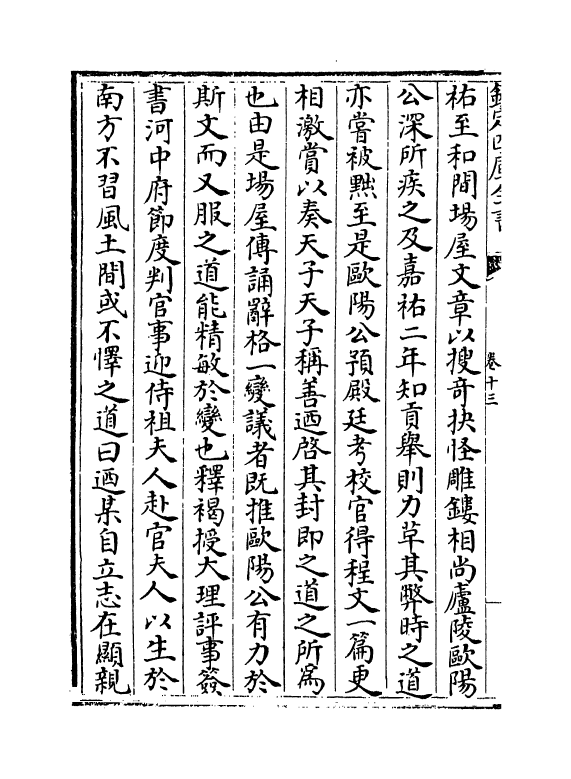 欽定四庫全書
卷十三
祐至和間場屋文章以搜奇抉怪雕鏤相尚廬陵歐陽
公深所疾之及嘉祐二年知貢舉則力草其弊時之道
亦嘗被黜至是歐陽公預殿廷考校官得程文一篇更
相激賞以奏天子天子稱善迺啓其封即之道之所為
也由是場屋傳誦辭格一變議者既推歐陽公有力於
斯文而又服之道能精敏於變也釋褐授大理評事簽
書河中府節度判官事迎侍祖夫人赴官夫人以生於
南方不習風土間或不懌之道曰迺某自立志在顯親